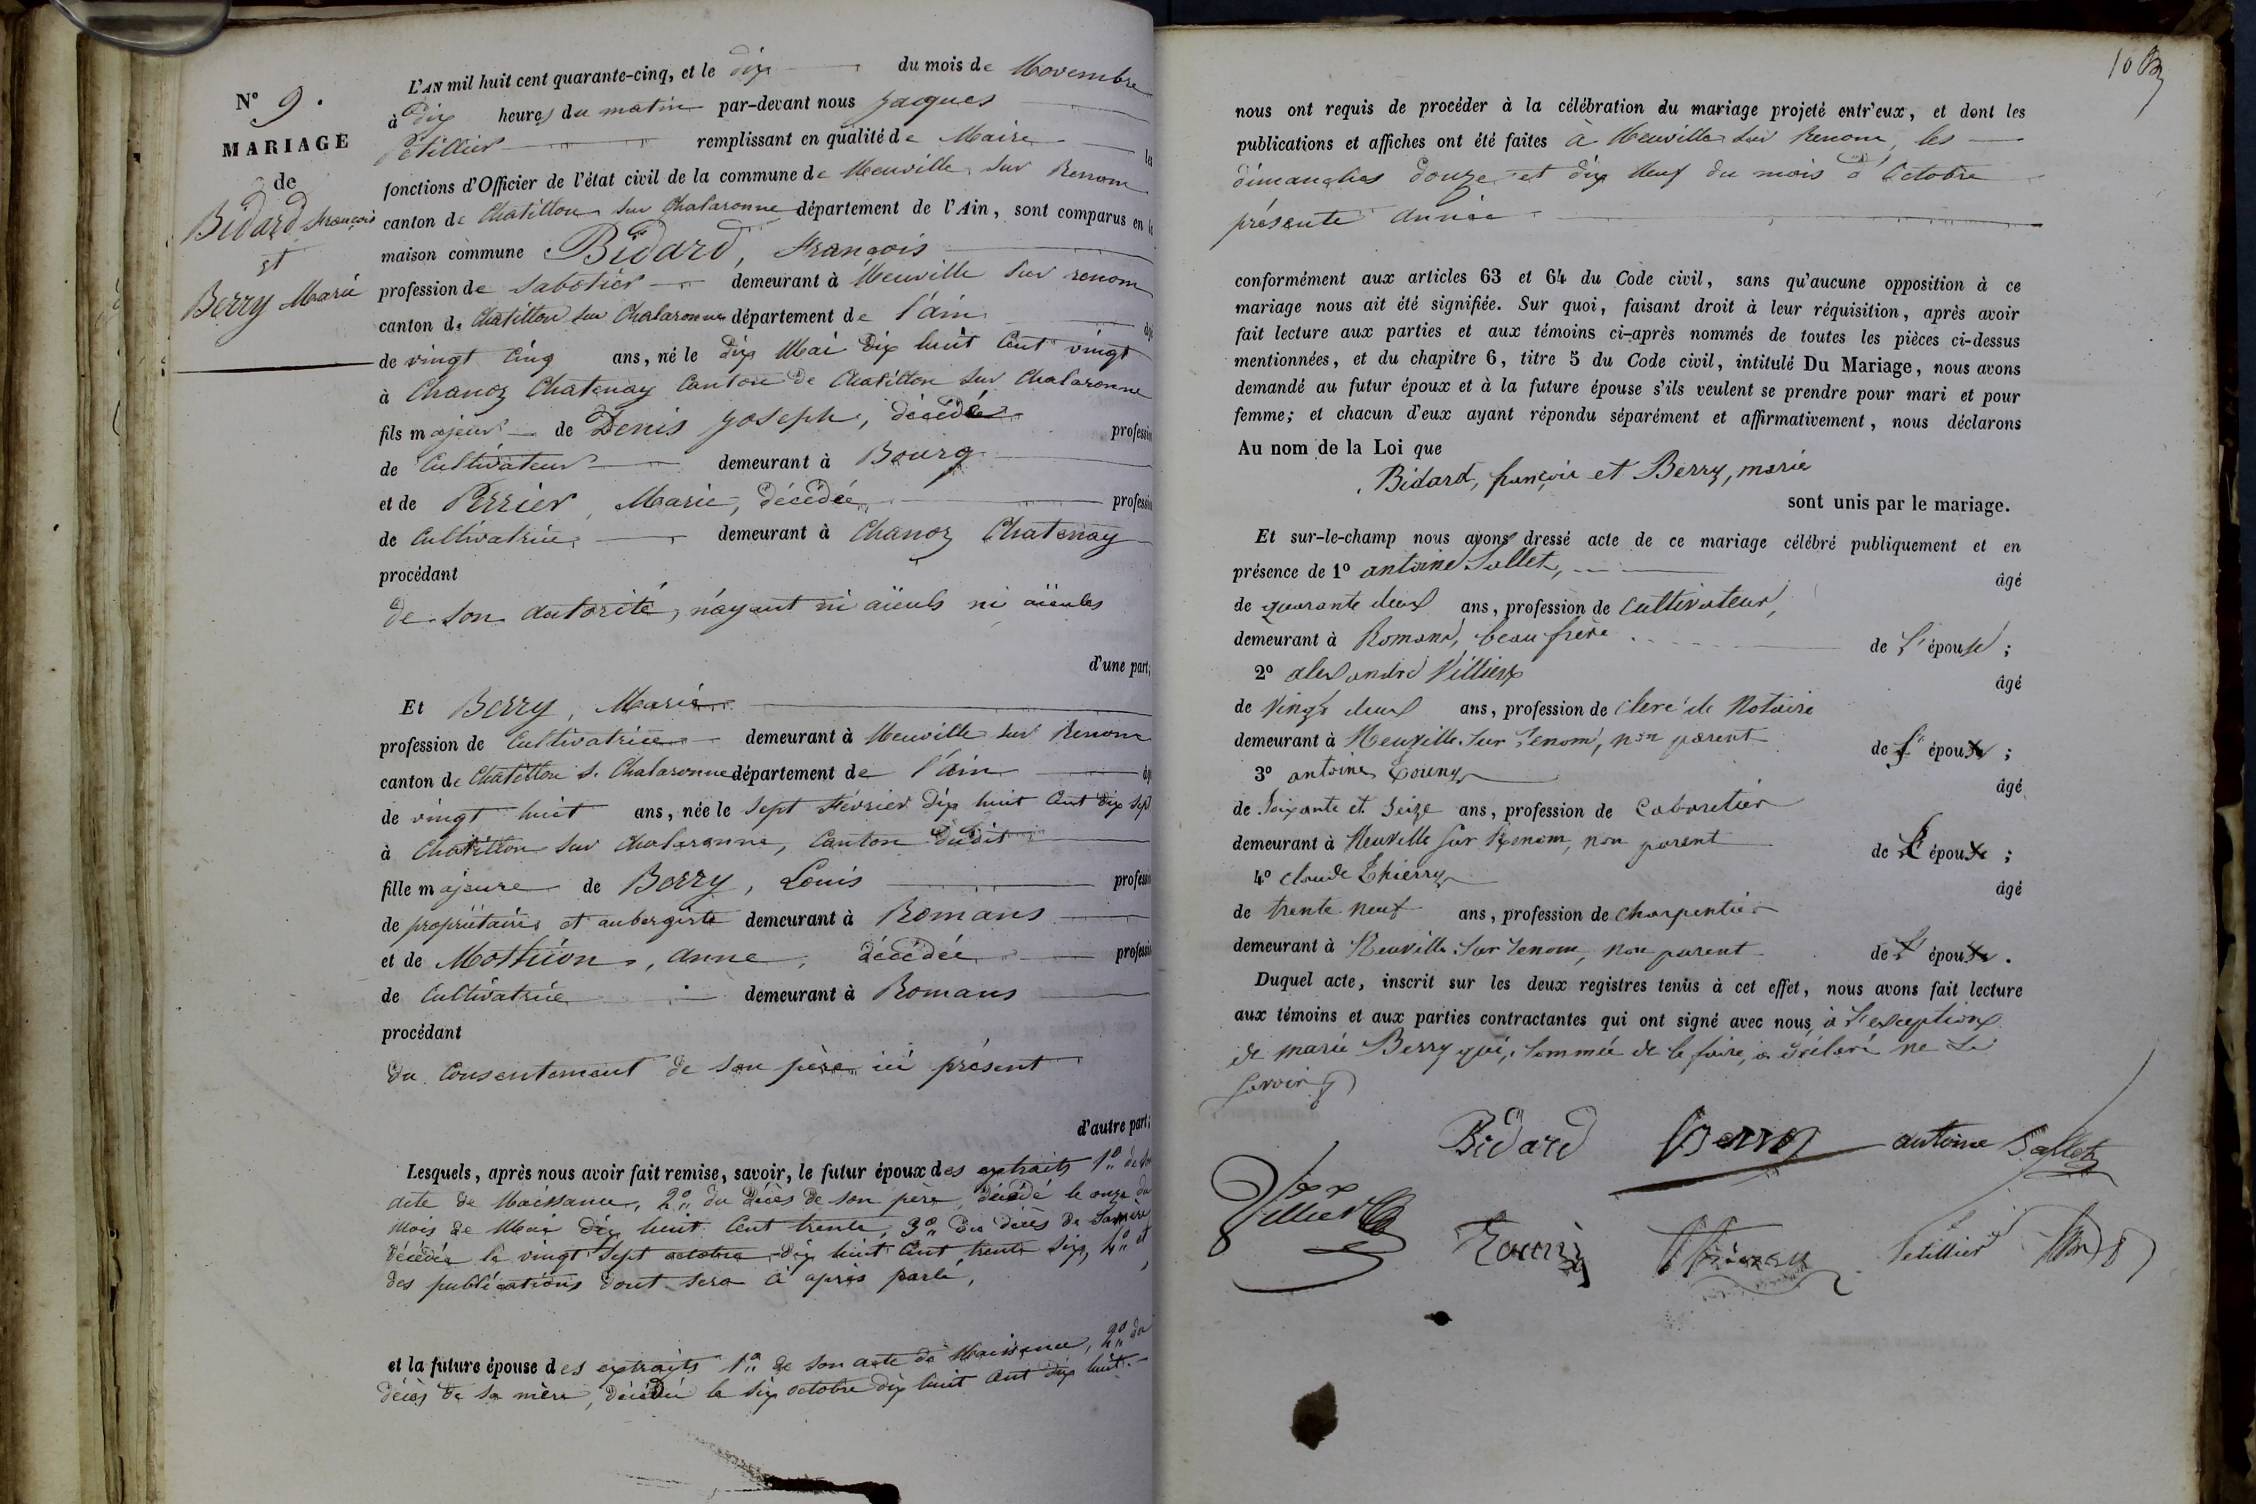 N° 9.
MARIAGE
de
Bidard François
et
Berry Marie
L'AN mil huit cent quarante-cinq, et le dix du mois de Novembre
à dix heures du matin par-devant nous Jacques
Petillier remplissant en qualité de Maire les
fonctions d'Officier de l'état civil de la commune de Neuville sur Renom
canton de Chatillon sur Chalaronne département de l'Ain, sont comparus en la
maison commune Bidard, François
profession de Sabotier demeurant à Neuville sur renom
canton de Chatillon sur Chalaronne département de l'ain âgé
de vingt cinq ans, né le dix Mai dix huit Cent vingt
à Chanoz Chatenay Canton de Chatillon sur Chalaronne
fils majeur de Denis Joseph, décédé profession
de Cultivateur demeurant à Bourg
et de Perrier, Marie, décédée profession
de Cultivatrice demeurant à Chanoz Chatenay
procédant
de son autorité, n'ayant ni aïeuls ni aïeules
d'une part;
Et Berry, Marie
profession de Cultivatrice demeurant à Neuville sur Renom
canton de Chatillon s. Chalaronne département de l'ain âgé
de vingt huit ans, née le sept Février dix huit Cent dix sept
à Chatillon sur Chalaronne, Canton dudit
fille majeure de Berry, Louis profession
de propriétaire et aubergiste demeurant à Romans
et de Mothion, anne, décédée profession
de Cultivatrice demeurant à Romans
procédant
du Consentement de son père ici présent
d'autre part;
Lesquels, après nous avoir fait remise, savoir, le futur époux des extraits 1° de son
acte de Naissance, 2° du décès de son père décédé le onze du
mois de Mai dix huit Cent trente, 3° du décès de Sa mère
décédée le vingt sept octobre dix huit Cent trente six, 4° et
des publications dont sera ci après parlé,
et la future épouse des extraits 1° de son acte de Naissance, 2° du
décès de sa mère, décédée le six octobre dix huit Cent dix huit.
nous ont requis de procéder à la célébration du mariage projeté entr'eux, et dont les
publications et affiches ont été faites à Neuville sur Renom, les
dimanches douze et dix Neuf du mois d'Octobre
présente année
conformément aux articles 63 et 64 du Code civil, sans qu'aucune opposition à ce
mariage nous ait été signifiée. Sur quoi, faisant droit à leur réquisition, après avoir
fait lecture aux parties et aux témoins ci-après nommés de toutes les pièces ci-dessus
mentionnées, et du chapitre 6, titre 5 du Code civil, intitulé Du Mariage, nous avons
demandé au futur époux et à la future épouse s'ils veulent se prendre pour mari et pour
femme; et chacun d'eux ayant répondu séparément et affirmativement, nous déclarons
Au nom de la Loi que
Bidard, françois et Berry, marie
sont unis par le mariage.
Et sur-le-champ nous avons dressé acte de ce mariage célébré publiquement et en
présence de 1° antoine Sallet, âgé
de quarante deux ans, profession de Cultivateur,
demeurant à Romans, beau frère de l'épouse;
2° alexandre Villieux âgé
de vingt deux ans, profession de clerc de Notaire
demeurant à Neuville sur renom, non parent de l'époux;
3° antoine Touny âgé
de soixante et seize ans, profession de Cabaretier
demeurant à Neuville sur Renom, non parent de l'époux;
4° claude Thierry âgé
de trente neuf ans, profession de charpentier
demeurant à Neuville sur renom, non parent de l'époux.
Duquel acte, inscrit sur les deux registres tenus à cet effet, nous avons fait lecture
aux témoins et aux parties contractantes qui ont signé avec nous, à l'exception
de marie Berry qui, sommée de le faire, a déclaré ne le
savoir
Bidard Berry antoine Sallet
Touny Thierry Petillier